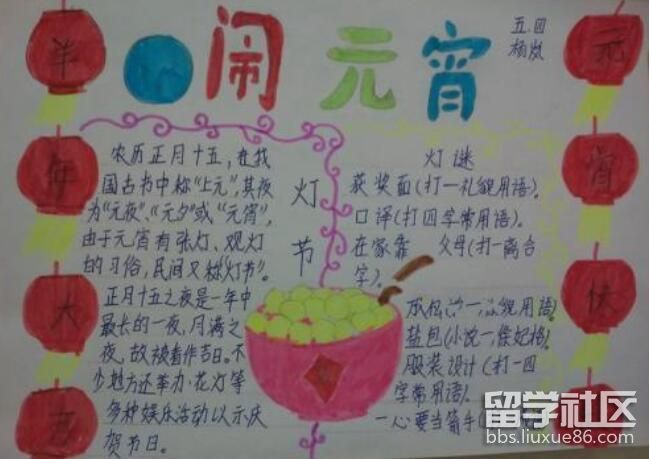 闹元宵
五.四
杨岚
羊
年
大
元
宵
快
农历正月十五,在我
国古书中称“上元”,其夜
为“元夜”、“元夕”或“元宵”,
由于元宵有张灯、观灯
的习俗,民间又称“灯节”。
正月十五之夜是一年中
最长的一夜,月满之
夜,故被看作吉日。不
少地方还举办花灯等
多种娱乐活动以示庆
贺节日。
灯
节
灯谜
获奖面(打一礼貌用语)。
口译(打四字常用语)。
在家靠 父母(打一离合
字)。
貌用语)
盐包(
服装设计(打一四
字常用语)。
一心要当箭手(
留学社区
bbs.liuxue86.com